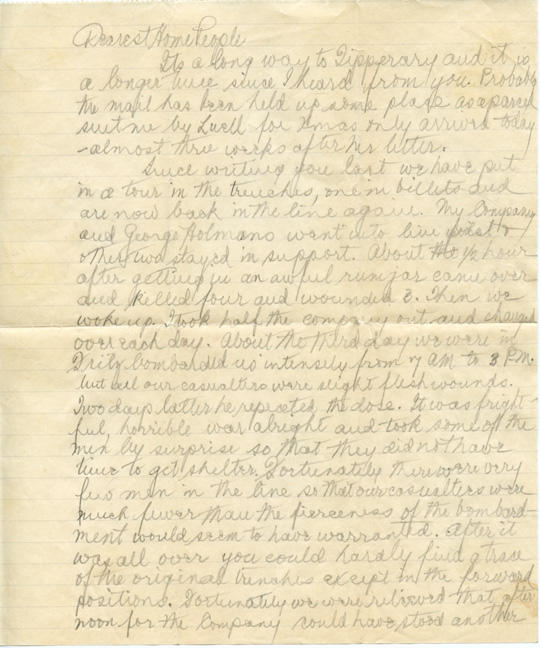 Dearest Home People
Its a long way to Tipperary and it is
a longer time since I heard from you. Probably
the mail has been held up some place as a parcel
sent me by Luell for Xmas only arrived today
- almost three weeks after her letter.
Since writing you last we have put
in a tour in the trenches, one in billets and
are now back in the line again. My Company
and George Holmans went into line
other two stayed in support. About the ½ hour
after getting in an awful rum jar came over
and killed four and wounded 3. Then we
woke up. I took half the company out and changed
over each day. About the third day we were in
Fritz bombarded us intensely from 7 AM to 3 P.M.
but all our casualters were slight flesh wounds.
Two days latter he repeated the dose. It was fright-
ful, horrible war alright and took some of the
men by surprise so that they did not have
time to get shelter. Fortunately there were very
few men in the line so that our casualters were
much fewer than the fierceness of the bombard-
ment would seem to have warranted. After it
was all over you could hardly find a trace
of the original trenches except in the forward
positions. Fortunately we were relieved that after
noon for the Company could have stood another